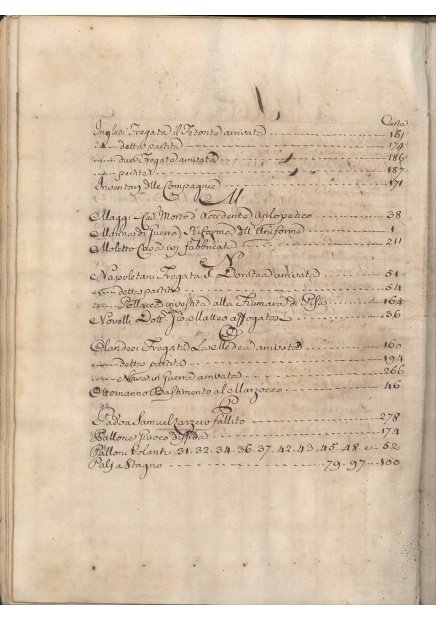 Carta
Inglesi Fregata il Tetonte arrivata 161
detta partita 174
due Fregate arrivata 186
partite 187
Inventarj delle Compagnie 171
M
Maggi Morto d'Accidente Apilopetico 38
di Guerra Riforma dell'Uniforme 1
Moletto fabbricata 211
N
Napoletani Fregata S. Dorotea arrivata 51
detta partita 54
Pollacca investita alla Fiumara di Pisa 164
Novelli Dott. Gio. Matteo affogatosi 36
O
Olandesi Fregata arrivata 160
detta partita 194
Nave di Guerra arrivata 266
Ottomanno Bastimento al Marzocco 46
P
Padoa Samuel fallito 278
Pallone Giuoco 174
Palloni Volanti 31. 32. 34. 36. 37. 42. 43. 45. 48 e 52
Palj a Stagno 79. 97. 100